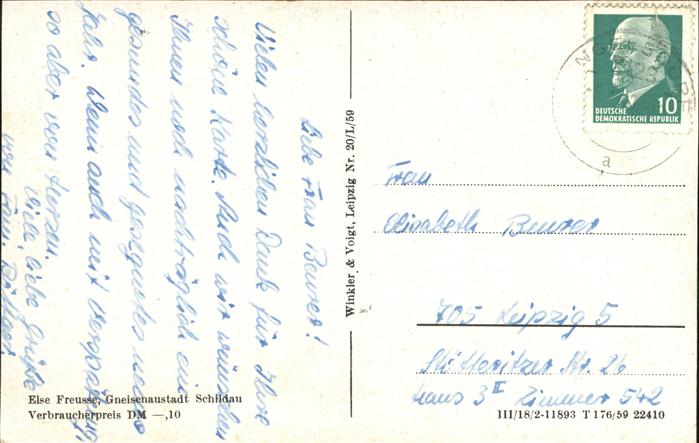 Liebe Frau Beurer!
Vielen herzlichen Dank für Ihre
schöne Karte. Auch wir wünschen
Ihnen noch nachträglich ein
gesundes und gesegnetes neues
Jahr. Wenn auch mit Verspätung,
so aber von Herzen.
Viele, liebe Grüße
von Fam.
Else Freusse, Gneisenaustadt Schildau
Verbraucherpreis DM —,10
Winkler & Voigt, Leipzig Nr. 20/L/59
10
DEUTSCHE
DEMOKRATISCHE REPUBLIK
a
Frau
Elisabeth Beurer
705 Leipzig 5
Stötteritzer Str. 26
Haus 3 II Zimmer 542
III/18/2-11893 T 176/59 22410